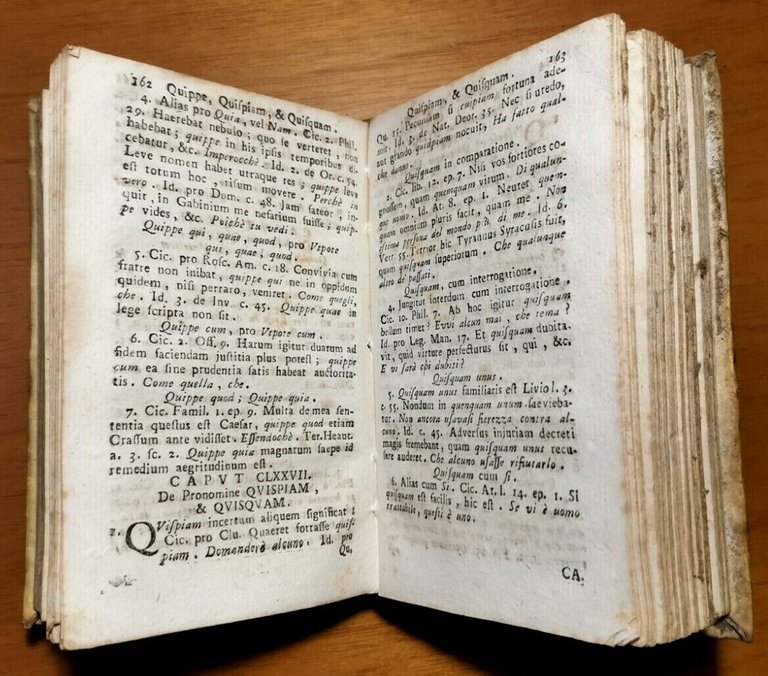 162 Quippe, Quispiam, & Quisquam.
4. Alias pro Quia, vel Nam. Cic. 2. Phil.
29. Haerebat nebulo; quo se verteret, non
habebat; quippe in his ipsis temporibus di-
cebatur, &c. Imperocchè. Id. 2. de Or. c. 54.
Leve nomen habet utraque res; quippe leve
est totum hoc, risum movere. Perchè in
vero. Id. pro Dom. c. 48. Jam fateor, in-
quit, in Gabinium me nefarium fuisse; quip-
pe vides, &c. Poichè tu vedi.
Quippe qui, quae, quod, pro Vtpote
qui, quae, quod.
5. Cic. pro Rosc. Am. c. 18. Convivia cum
fratre non inibat, quippe qui ne in oppidum
quidem, nisi perraro, veniret. Come quegli,
che. Id. 3. de Inv. c. 45. Quippe quae in
lege scripta non sit.
Quippe cum, pro Vtpote cum.
6. Cic. 2. Off. 9. Harum igitur duarum ad
fidem faciendam justitia plus potest; quippe
cum ea sine prudentia satis habeat auctorita-
tis. Come quella, che.
Quippe quod; Quippe quia.
7. Cic. Famil. 1. ep. 9. Multa de mea sen-
tentia questus est Caesar, quippe quod etiam
Crassum ante vidisset. Essendochè. Ter. Heaut.
a. 3. sc. 2. Quippe quia magnatum saepe id
remedium aegritudinum est.
CAPVT CLXXVII.
De Pronomine QVISPIAM,
& QVISQVAM.
1. QVispiam incertum aliquem significat
Cic. pro Clu. Quaeret fortasse quis-
piam. Domanderà alcuno. Id. pro
Qu.
Quispiam, & Quisquam. 163
Qu. 15. Pecuniam si cuipiam fortuna ade-
mit. Id. 3. de Nat. Deor. 35. Nec si uredo,
aut grando quidpiam nocuit, Ha fatto qual-
che danno.
Quisquam in comparatione.
2. Cic. lib. 12. ep. 7. Nisi vos fortiores co-
gnossem, quam quemquam virum. Di qualun-
que uomo. Id. At. 8. ep. 1. Neuter quem-
quam omnium pluris facit, quam me. Non
istima persona del mondo più di me. Id. 6.
Verr. 55. Tetrior hic Tyrannus Syracusis fuit,
quam quisquam superiorum. Che qualunque
altro de' passati.
Quisquam, cum interrogatione.
4. Jungitur interdum cum interrogatione.
Cic. 10. Phil. 7. Ab hoc igitur quisquam
bellum timet? Evvi alcun mai, che tema?
Id. pro Leg. Man. 17. Et quisquam dubita-
vit, quid virtute perfecturus sit, qui, &c.
E vi sarà chi dubiti?
Quisquam unus.
5. Quisquam unus familiaris est Livio l. 3.
c. 55. Nondum in quenquam unum saeviebа-
tur. Non ancora usavasi fierezza contra al-
cuno. Id. c. 45. Adversus injuriam decreti
magis fremebant, quam quisquam unus recu-
sare auderet. Che alcuno usasse rifiutarlo.
Quisquam cum si.
6. Alias cum Si. Cic. At. l. 14. ep. 1. Si
quisquam est facilis, hic est. Se vi è uomo
trattabile, questi è uno.
CA.